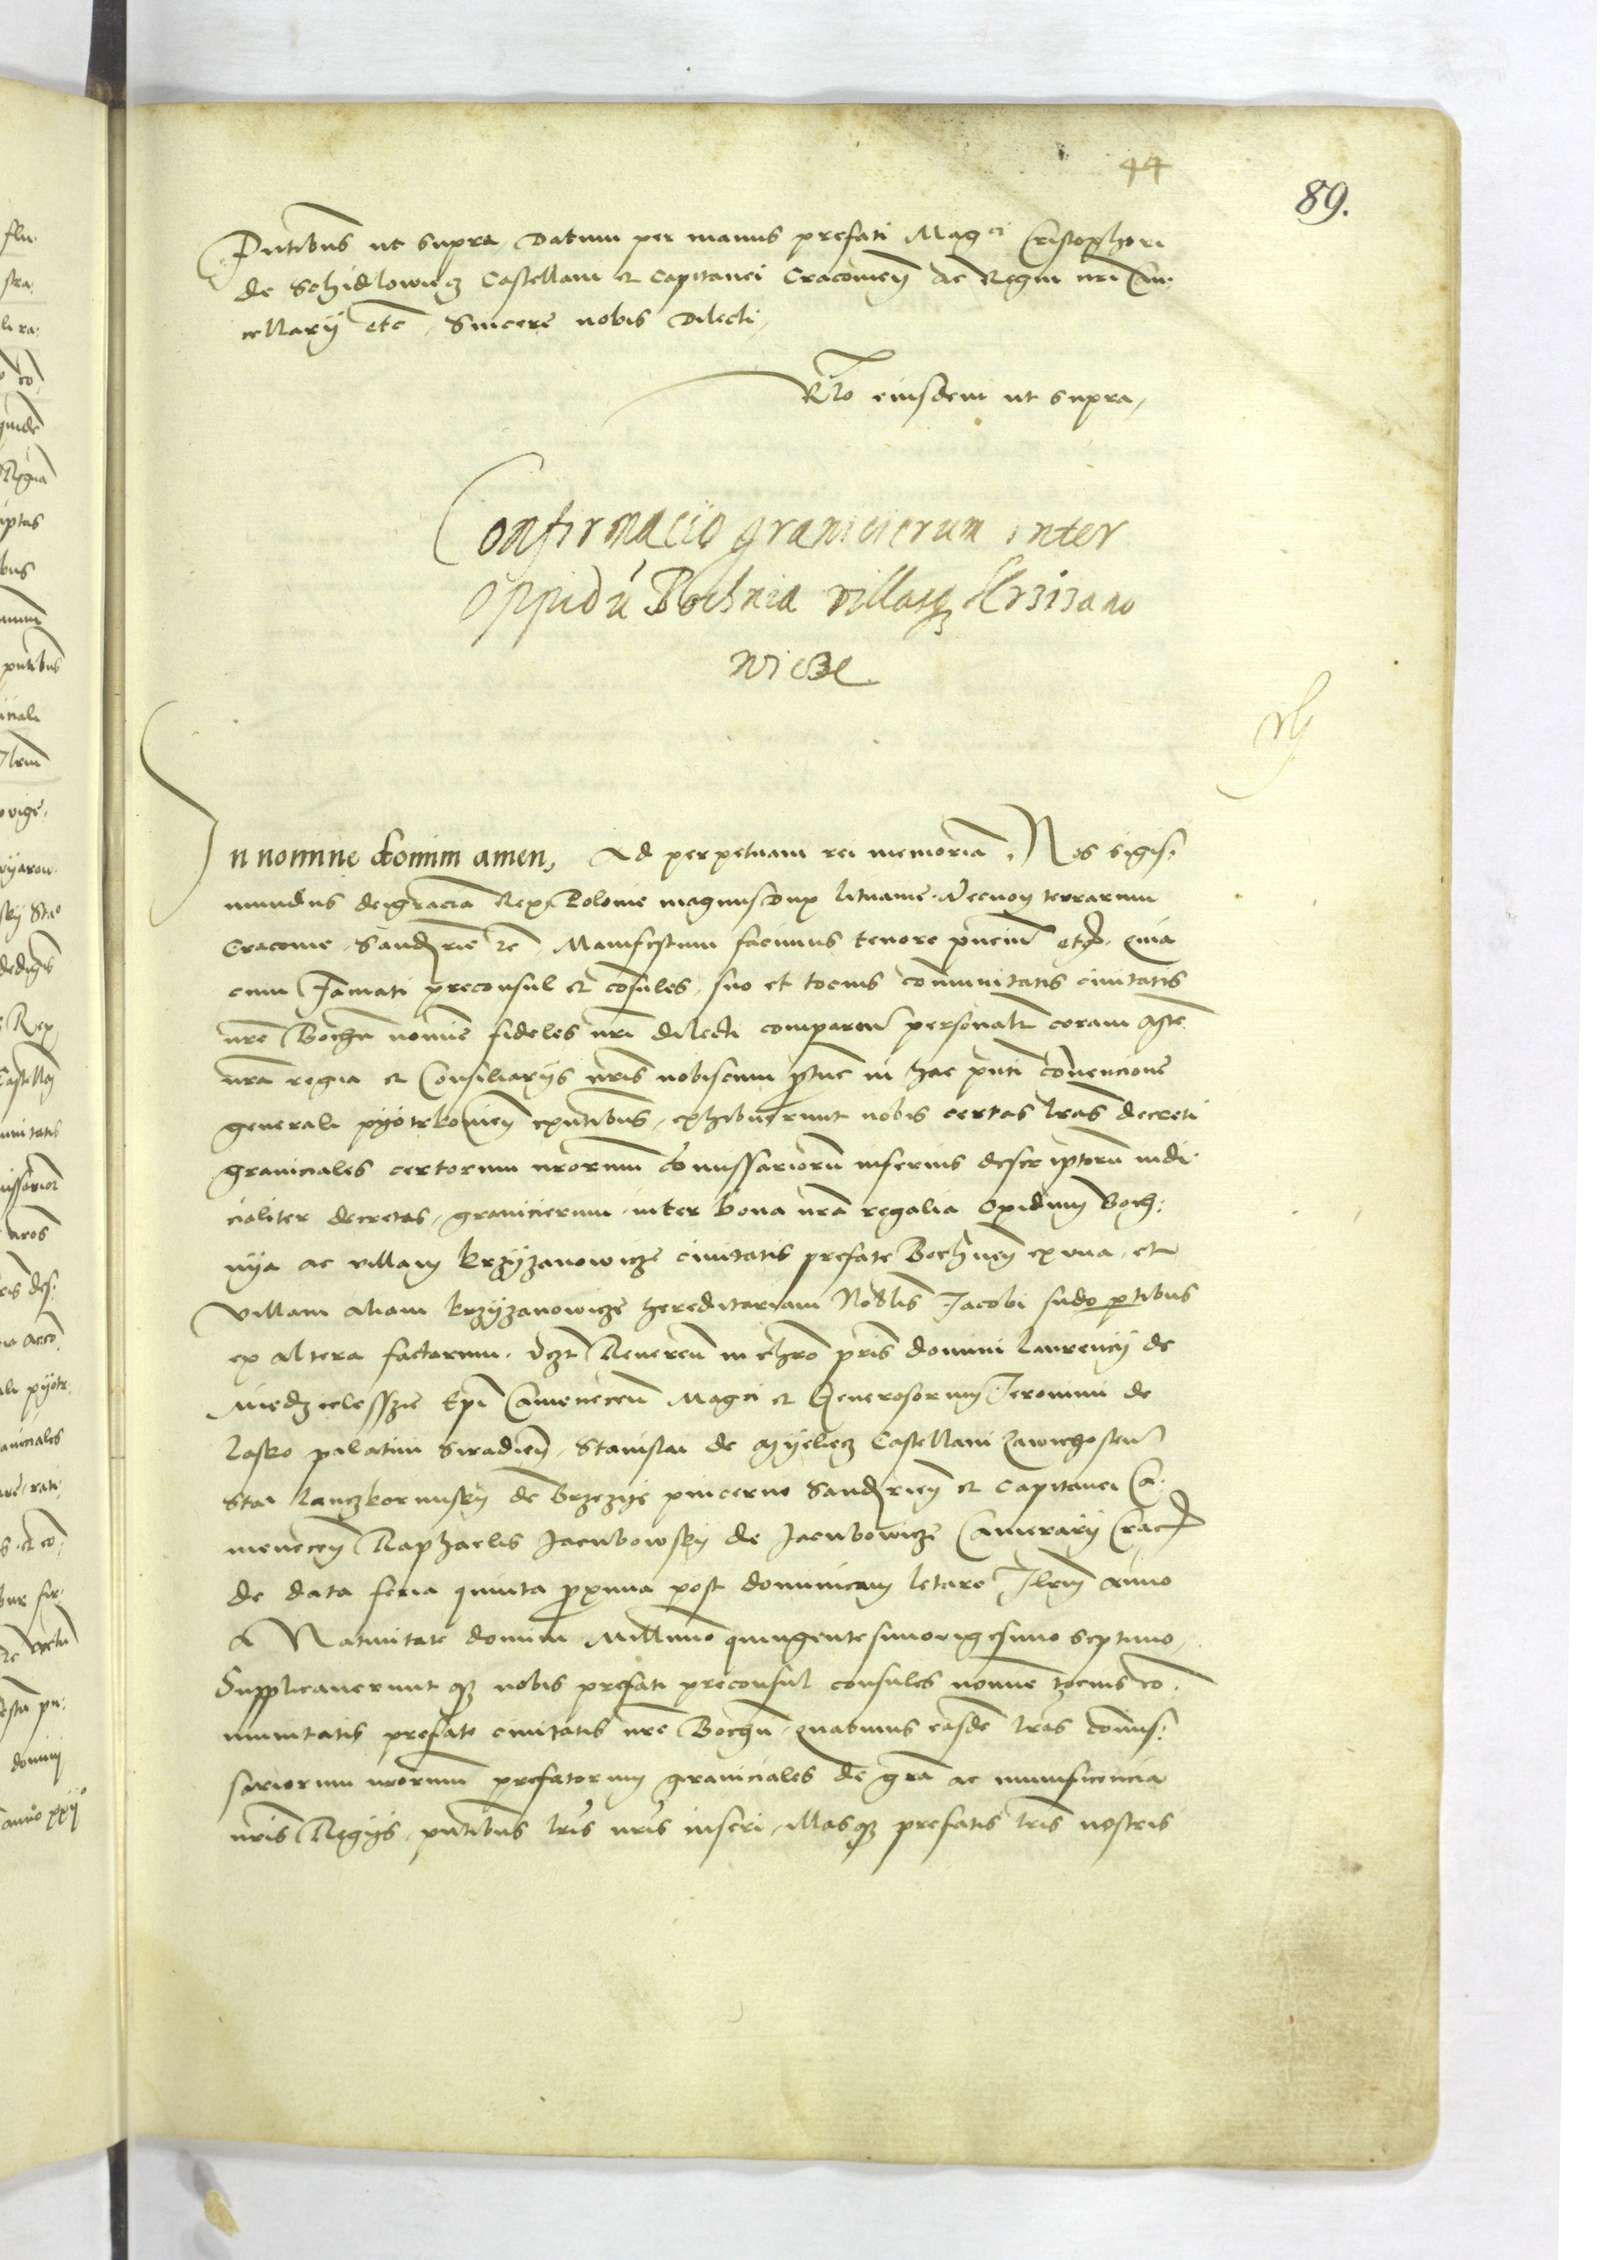 44
89.
Pntibus ut supra Datum per manus prefati Magci Cristophori
de Schidlowiecz Castellani et Capitanei Cracovien ac Regni nri Can,
cellarij etc Sincere nobis Dilecti,
Rlo eiusdem ut supra,
Confirmacio granicierum inter
Oppidũ Bochnia villasq Krzizano
wicze
In nomine domini amen, Ad perpetuam rei memoriã. Nos Sigis:
mundus dei gracia Rex Polonie magnus dux Lituanie Necnon terrarum
Cracovie, Sandrie etc Manifestum facimus tenore pnciũ etc, quia
cum Famati preconsul et cõsules, suo et tocius cõmunitatis civitatis
nre Bochn nomine fideles nri dilecti comparen personalr coram Mgte
nra regia et Consiliarijs nris nobiscum ptunc in hac pnti cõvencione
generali pijotrkovien exntibus, exhibuerunt nobis certas lras decreti
graniciales certorum nrorum cõmissariorũ inferius descriptorũ iudi
cialiter decretas, granicierum inter bona nra regalia Opidum Boch:
nija ac villam Krzijzanowicze civitatis prefate Bochnen ex una, et
villam aliam Krzijzanowicze hereditariam Noblis Jacobi sudo ptibus
ex altera factarum. Vzt Reveren in chro pris domini Laurencij de
Miedzielessze Epi Camenecen Magci et Generosorum Jeronimi de
Lasko palatini Siradien, Stanislai de Mijelecz Castellani Zawichosten
Stai Lanczkorunskij de Brzezije pincerne Sandrien et Capitanei Ca,
menecen Raphaelis Jacubowskij de Jacubowicze Camerarij Crac
de data feria quinta pxima post dominicam letare Jlrm anno
A Nativitate domini Millimo quingentesimo vigesimo septimo,
Supplicaveruntq nobis prefati preconsul consules nomine tocius cõ,
munitatis prefate civitatis nre Bochn, quatinus easdẽ lras cõmis:
sariorum nrorum prefatorum graniciales de gra ac munificencia
nris Regijs, pntibus lris nris inseri, illasq prefatis lris nostris